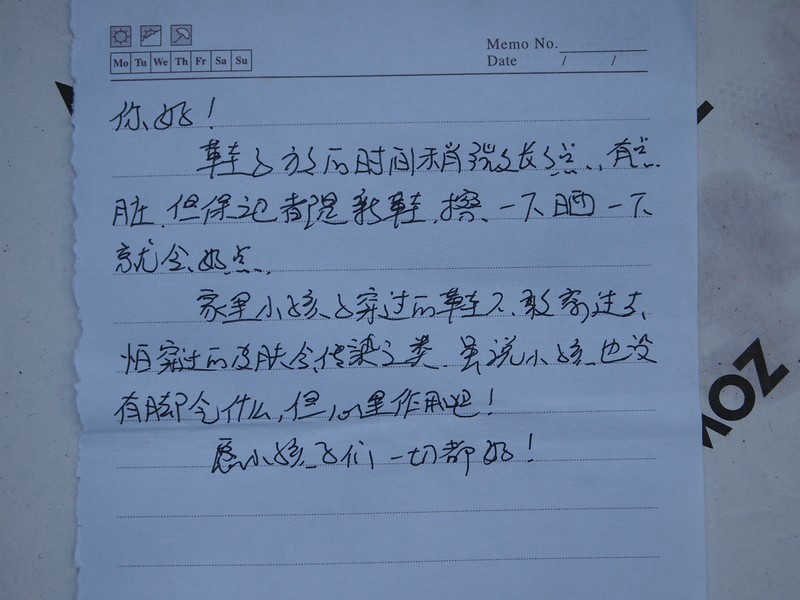 Memo No.
Mo Tu We Th Fr Sa Su
Date / /
你好！
鞋子放的时间稍微长了点，有点
脏，但保证都是新鞋，擦一下晒一下
就会好点。
家里小孩子穿过的鞋不敢寄过去，
怕穿过的皮肤会传染之类，虽说小孩也没
有脚气什么，但心里作用吧！
愿小孩子们一切都好！
MOZ